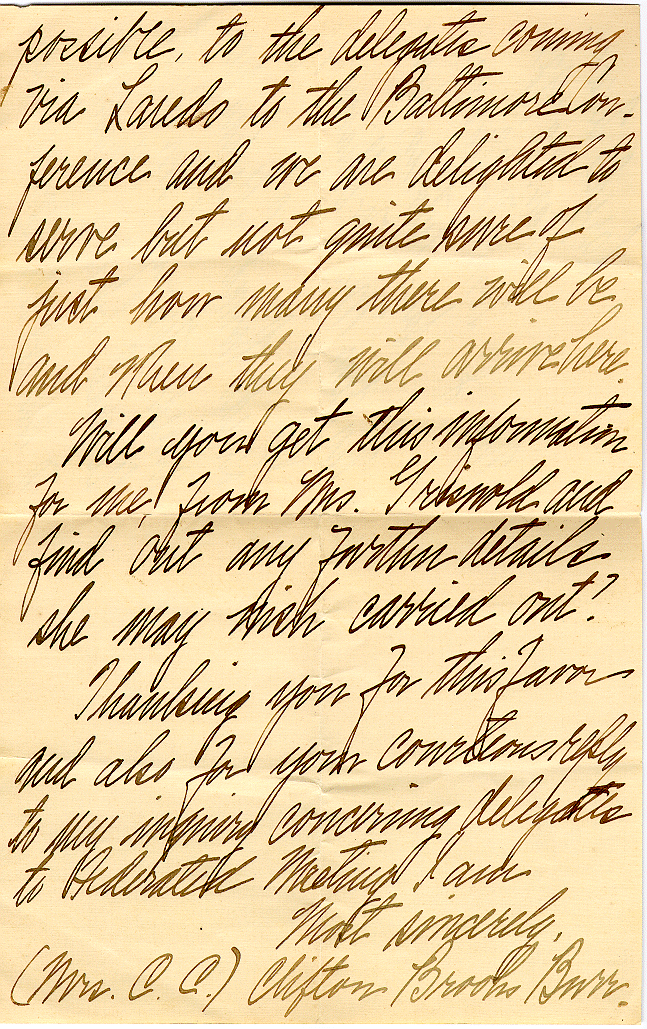 possible, to the delegates coming
via Laredo to the Baltimore Con-
ference and we are delighted to
serve but not quite sure of
just how many there will be
and when they will arrive here.
Will you get this information
for me, from Mrs. Griswold and
find out any further details
she may wish carried out?
Thanking you for this favor
and also for your courteous reply
to my inquiry concerning delegates
to Federated Meeting I am
Most sincerely,
(Mrs. C. C.) Clifton Brooks Burr.